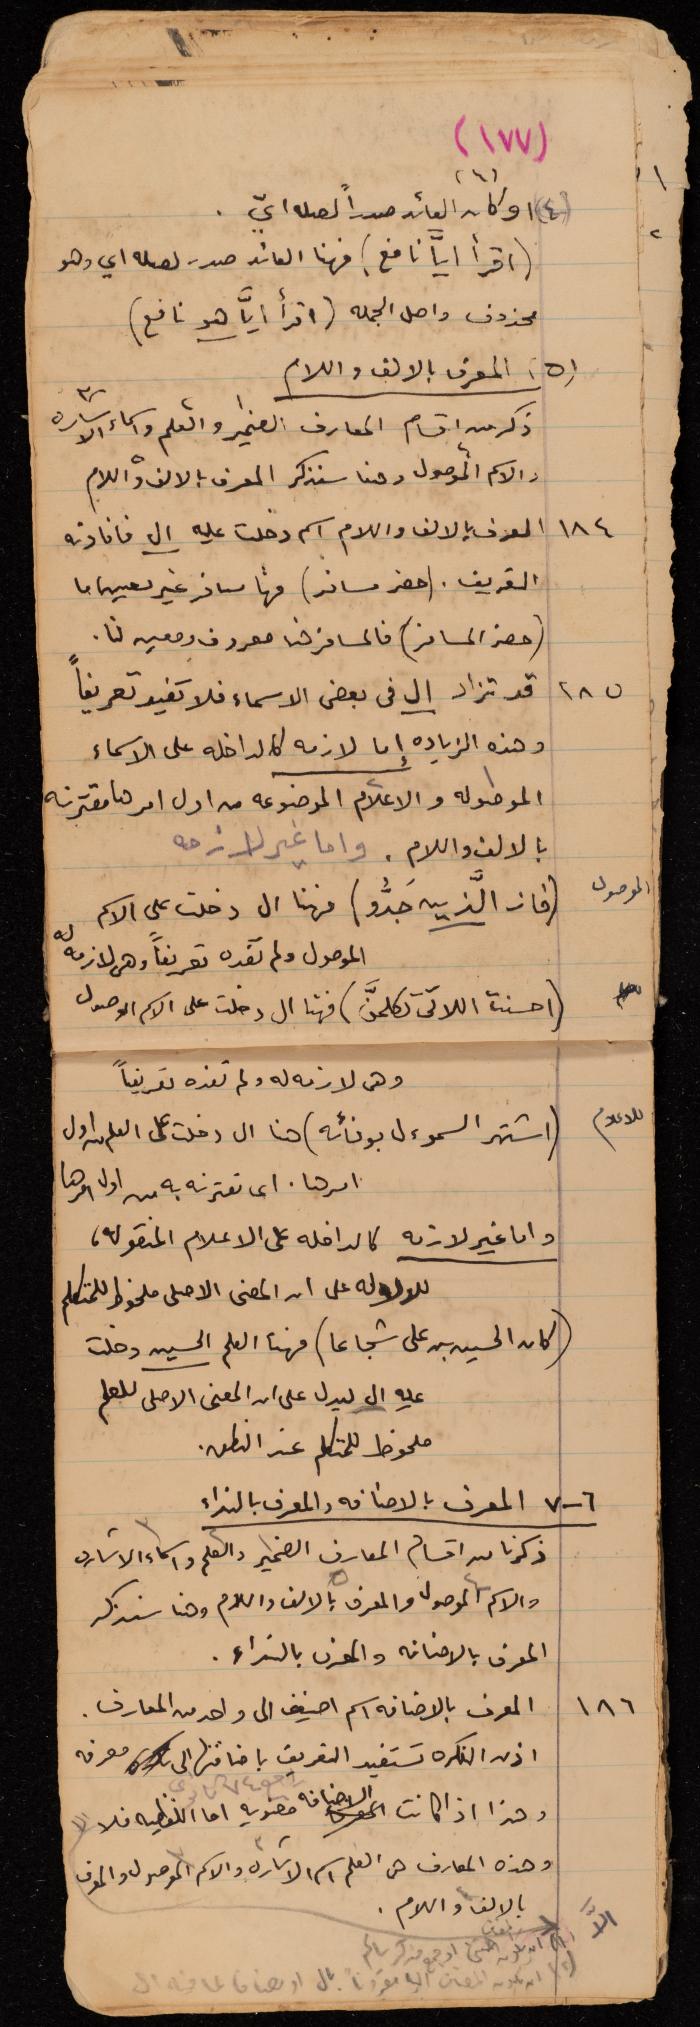 (١٧٧)
(٤) او كان العائد صدراً لصله ايّ .
(اقرأ ايّاً نافع) فهنا العائد صدر لصله اي وهو
محذوف واصل الجمله (اقرأ ايّاً هو نافع)
(٥) المعرف بالالف واللام
ذكر من اقسام المعارف الضمير والعلم واسماء الاشاره
والاسم الموصول وهنا سنذكر المعرف بالالف واللام
١٨٤ المعرف بالالف واللام اسم دخلت عليه ال فافادته
التعريف . (حضر مسافر) فهنا مسافر غير معين اما
(حضر المسافر) فالمسافر هنا معروف ومعين لنا .
١٨٥ قد تزاد ال في بعض الاسماء فلا تفيد تعريفاً
وهذه الزياده إما لازمه كالداخله على الاسماء
الموصوله والاعلام الموضوعه من اول امرها مقترنه
بالالف واللام . واما غير لازمه
الموصول (فاز الَّذين جَدُّو) فهنا ال دخلت على الاسم
الموصول ولم تفده تعريفاً وهي لازمه له
(احسنت اللاتي تكلمنَّ) فهنا ال دخلت على الاسم الموصول
وهي لازمه له ولم تفده تعريفاً
للاعلام (اشتهر السموءل بوفائه) هنا ال دخلت على العلم من اول
امرها . اي تقترنه به من اول امرها
واما غير لازمه كالداخله على الاعلام المنقوله،
للدلاله على ان المعنى الاصلي ملحوظ للمتكلم
(كان الحسين بن علي شجاعا) فهنا العلم الحسين دخلت
عليه ال ليدل على ان المعنى الاصلي للعلم
ملحوظ للمتكلم عند النطق .
٦-٧ المعرف بالاضافه والمعرف بالنداء
ذكرنا من اقسام المعارف الضمير والعلم واسماء الاشاره
والاسم الموصول والمعرف بالالف واللام وهنا سنذكر
المعرف بالاضافه والمعرف بالنداء .
١٨٦ المعرف بالاضافه اسم اضيف الى واحد من المعارف .
اذن النكره تستفيد التعريف باضافتها الى معرفه
وهذا اذا كانت الاضافه معنويه اما اللفظيه فلا
وهذه المعارف هي العلم اسم الاشاره والاسم الموصول والمعرف
بالالف واللام .
الاَّ (١) ان يكون المضاف مثنى او جمع مذكر سالم
(٢) ان يكون المضاف اليه مقروناً بال او مضافا لما فيه ال